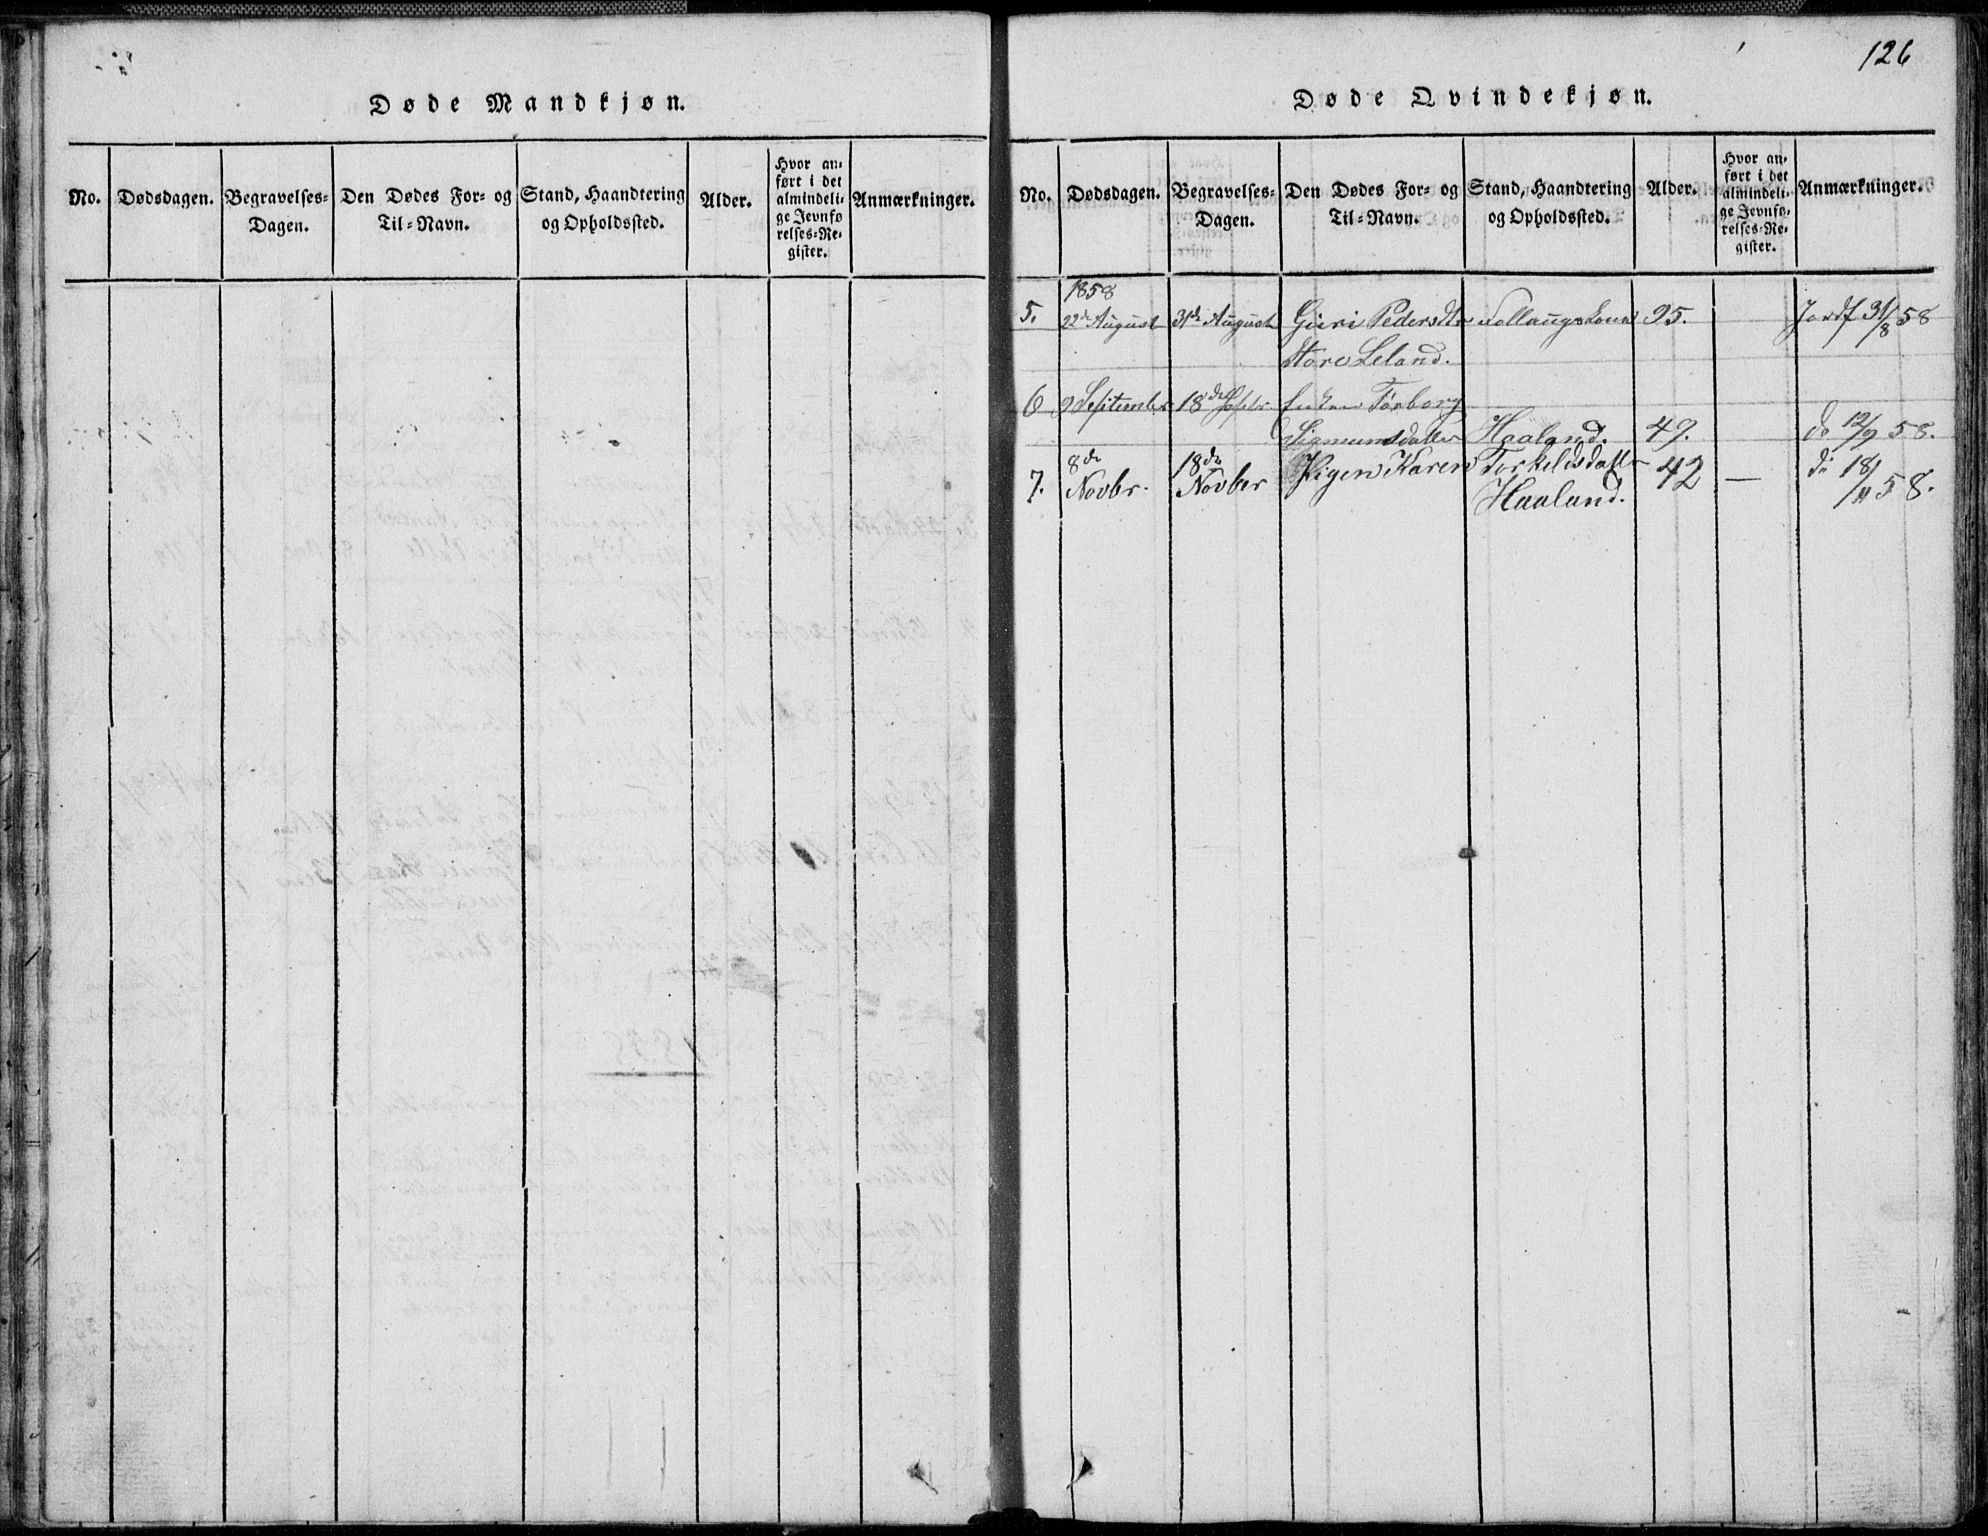 126
Døde Mandkjøn.
No. Dødsdagen. Begravelses-Dagen. Den Dødes For- og Til-Navn. Stand, Haandtering og Opholdssted. Alder. Hvor anført i det almindelige Jevnførelses-Register. Anmærkninger.
Døde Qvindekjøn.
No. Dødsdagen. Begravelses-Dagen. Den Dødes For- og Til-Navn. Stand, Haandtering og Opholdssted. Alder. Hvor anført i det almindelige Jevnførelses-Register. Anmærkninger.
1858
5. 22de August 31te August Guri Pedersdtr 95. Jordf 31/8 58
Store Leland.
6 9 September 18de Septbr Enken Tørborg
Sigmundsdatter Haaland. 49. do 12/9 58.
7. 8de Novbr. 18de Novber Pigen Karen Torkeldsdatter 42 — do 18/11 58.
Haaland.